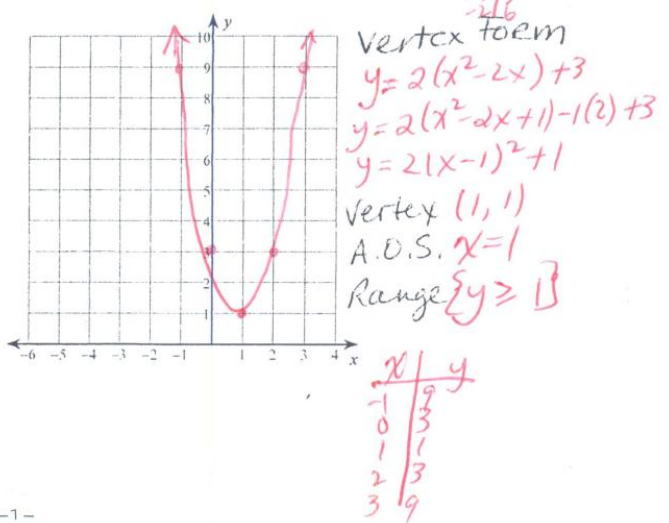 Vertex Form
y = 2(x²-2x)+3
y = 2(x²-2x+1)-1(2)+3
y = 2(x-1)²+1
Vertex (1, 1)
A.O.S. x=1
Range {y ≥ 1}
y
10
9
8
7
6
5
4
3
2
1
-6 -5 -4 -3 -2 -1 1 2 3 4 x
x y
-1 9
0 3
1 1
2 3
3 9
-1-